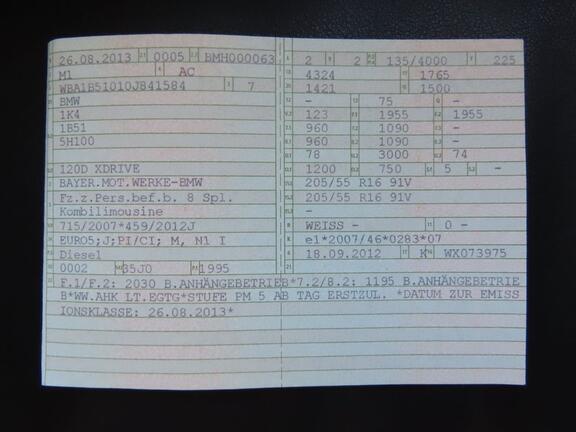 26.08.2013 0005 BMH000063
M1 AC
WBA1B51010J841584 7
BMW
1K4
1B51
5H100
120D XDRIVE
BAYER.MOT.WERKE-BMW
Fz.z.Pers.bef.b. 8 Spl.
Kombilimousine
715/2007*459/2012J
EURO5;J;PI/CI; M, N1 I
Diesel
0002 35J0 1995
2 2 135/4000 225
4324 1765
1421 1500
- 75 -
123 1955 1955
960 1090 -
960 1090 -
78 3000 74
1200 750 5 -
205/55 R16 91V
205/55 R16 91V
-
WEISS - 0 -
e1*2007/46*0283*07
18.09.2012 K WX073975
F.1/F.2: 2030 B.ANHÄNGEBETRIEB*7.2/8.2: 1195 B.ANHÄNGEBETRIE
B*WW.AHK LT.EGTG*STUFE PM 5 AB TAG ERSTZUL. *DATUM ZUR EMISS
IONSKLASSE: 26.08.2013*